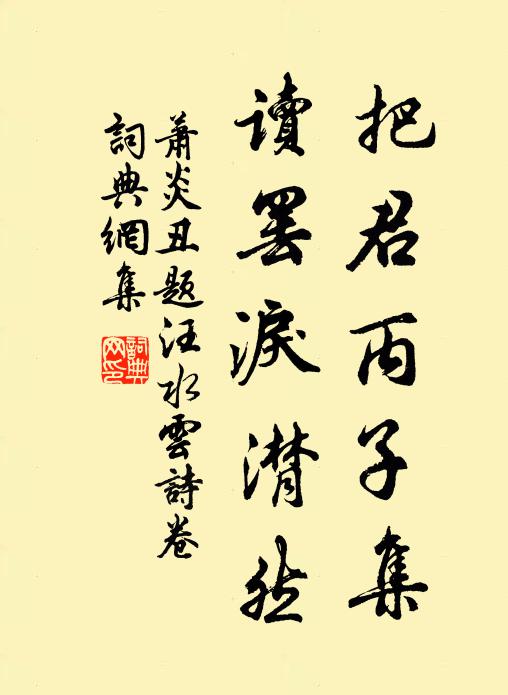 把君丙子集
讀罷淚潸然
蕭炎丑題汪水雲詩卷
詞典網集
詞典网印